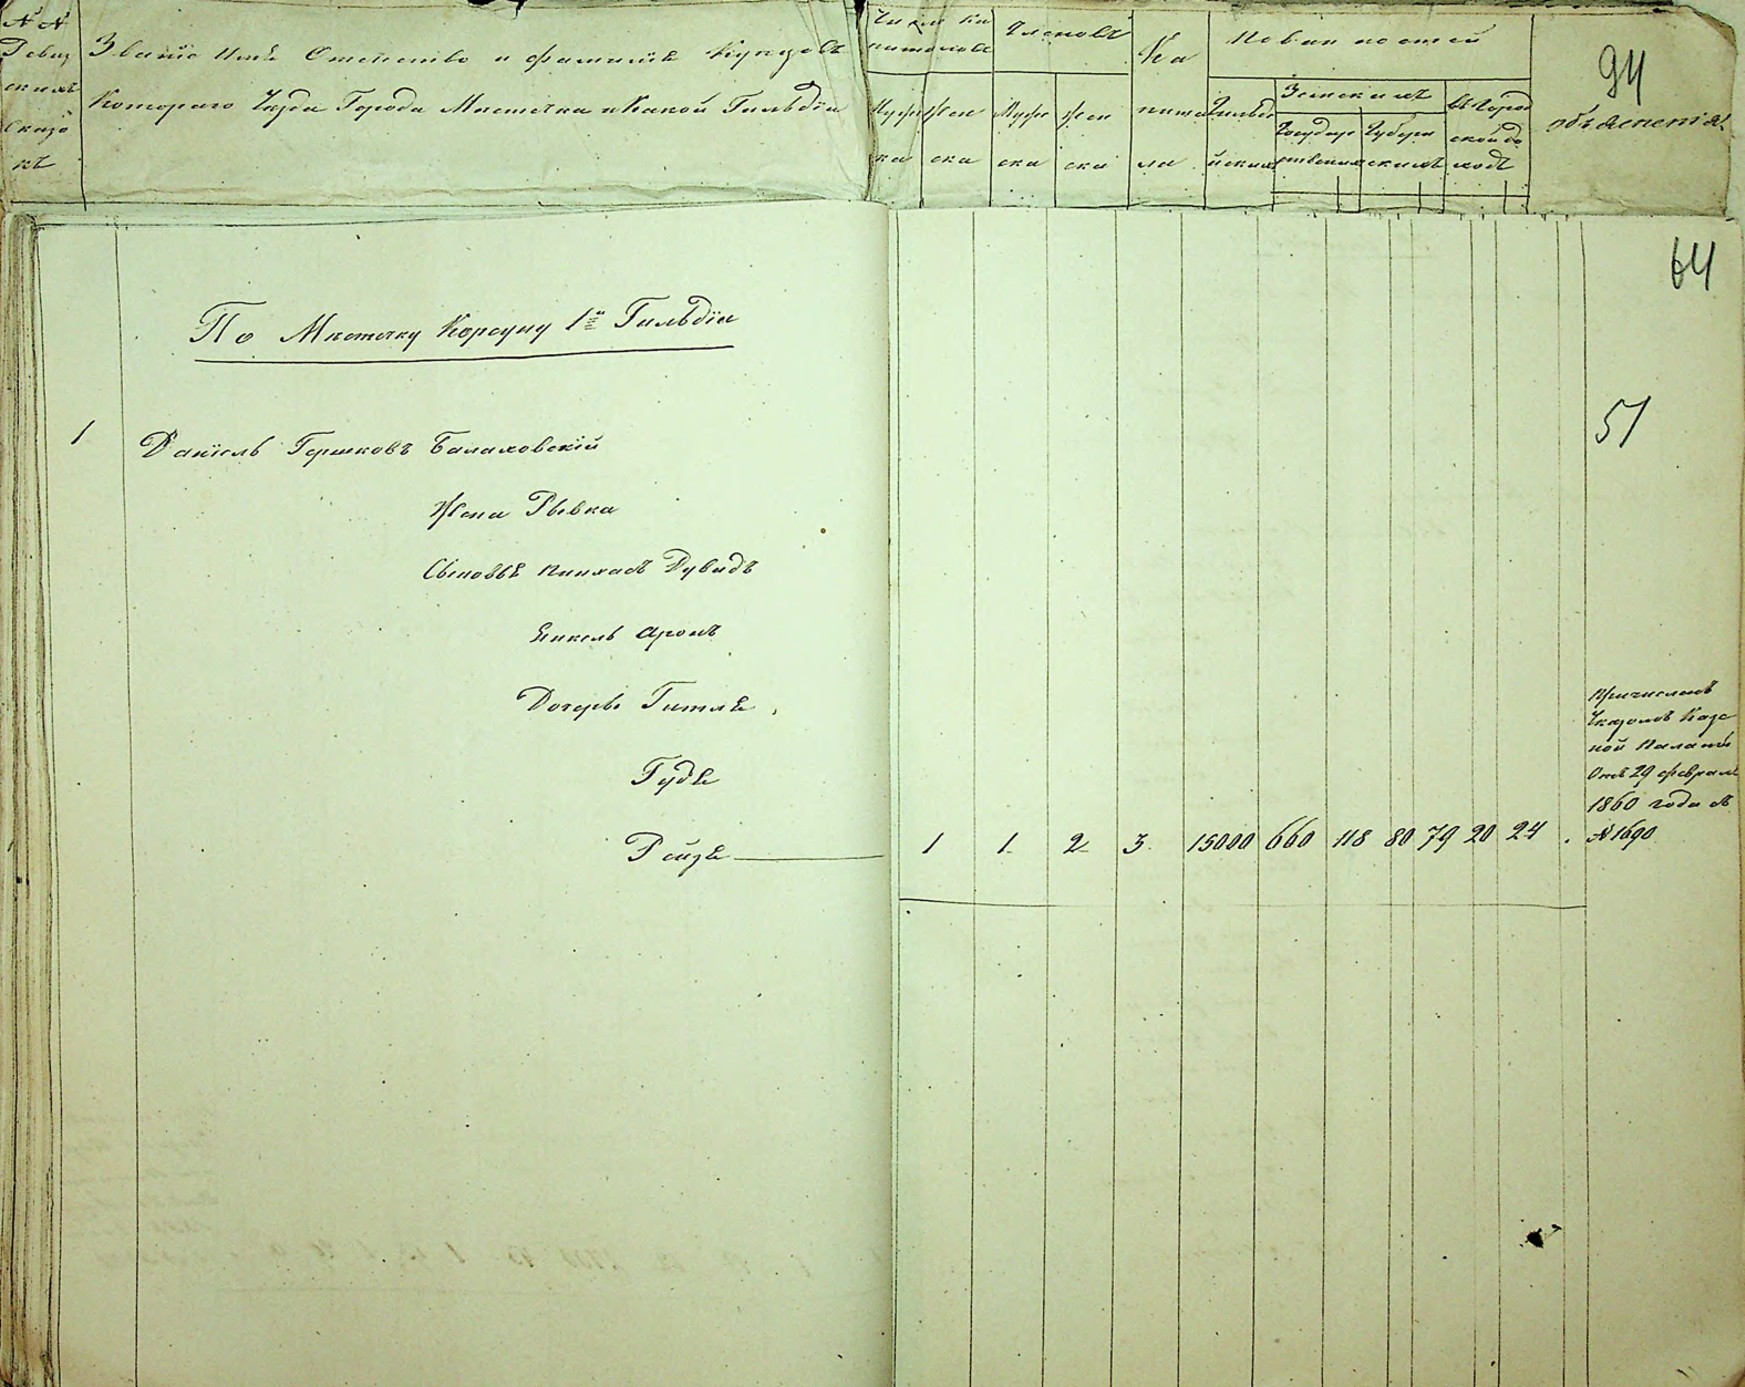 №№ Ревизскихъ Сказокъ
Званіе Имѣ Отечество и фамилiѣ Купцовъ
Котораго Уѣзда Города Мистечка и Какой Гильдіи
Число капиталовъ
Мужеска
Женска
Членовъ
Мужеска
Женска
Капитала
Повинностей
Гильдейских
Земскихъ
Государственных
Губернскихъ
Въ Городской доходъ
94
объясненія
64
По Мистечку Корсуну 1й Гильдіи
51
1 Даніель Гершковъ Балаховскій
Жена Рывка
Сыновьѣ Пинхасъ Дувидъ
Янкель Аронъ
Дочерь Гитлѣ
Гудѣ
Рейзѣ 1 1 2 3 15000 660 118 80 79 20 24
Причисленъ
Указомъ Казе
ной Палаты
Отъ 29 февраля
1860 года съ
№ 1690